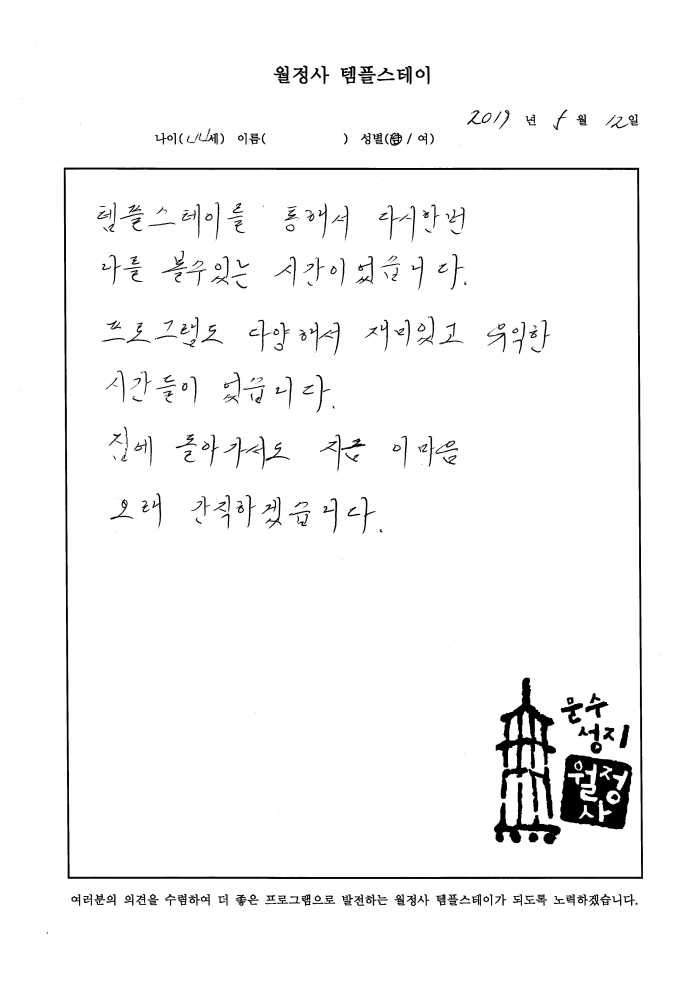 월정사 템플스테이
2019 년 5 월 12일
나이(44세) 이름( ) 성별(남 / 여)
템플스테이를 통해서 다시한번
나를 볼수있는 시간이었습니다.
프로그램도 다양해서 재미있고 유익한
시간들이 었습니다.
집에 돌아가서도 지금 이마음
오래 간직하겠습니다.
문수
성지
월정
사
여러분의 의견을 수렴하여 더 좋은 프로그램으로 발전하는 월정사 템플스테이가 되도록 노력하겠습니다.